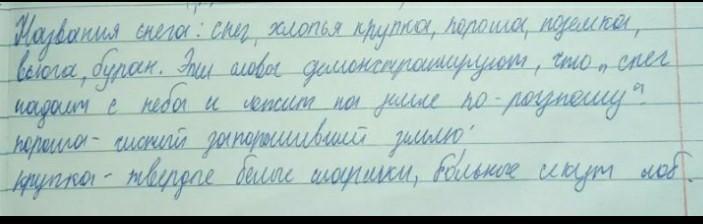 Названия снега: снег, хлопья крупка, пороша, поземка,
вьюга, буран. Эти слова демонстрируют, что „снег
падает с неба и лежит на земле по-разному“.
пороша - чистый запорошивший землю
крупка - твердые белые шарики, больное секут лоб.